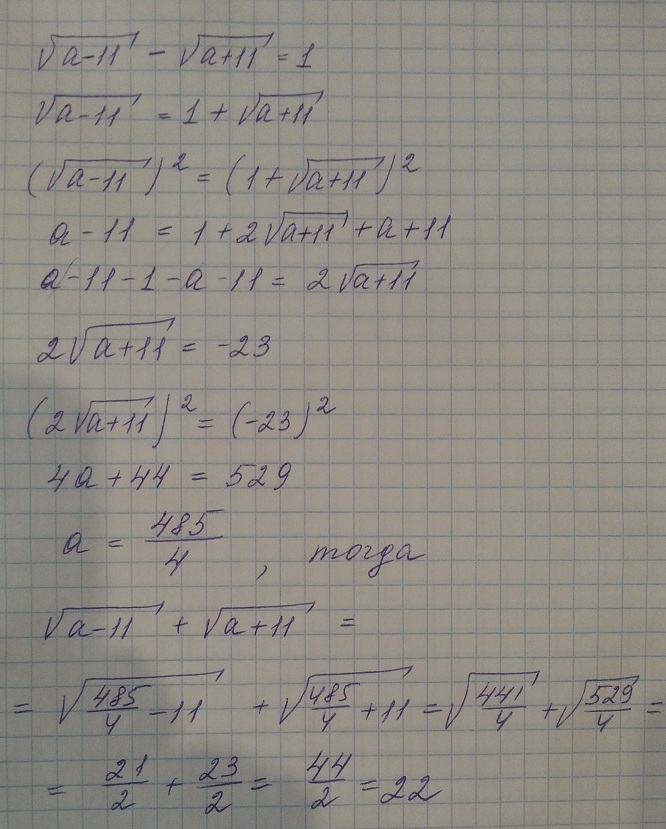 √(a-11) - √(a+11) = 1
√(a-11) = 1 + √(a+11)
(√(a-11))² = (1+√(a+11))²
a - 11 = 1 + 2√(a+11) + a + 11
a - 11 - 1 - a - 11 = 2√(a+11)
2√(a+11) = -23
(2√(a+11))² = (-23)²
4a + 44 = 529
a = 485/4 , тогда
√(a-11) + √(a+11) =
= √(485/4 - 11) + √(485/4 + 11) = √(441/4) + √(529/4) =
= 21/2 + 23/2 = 44/2 = 22